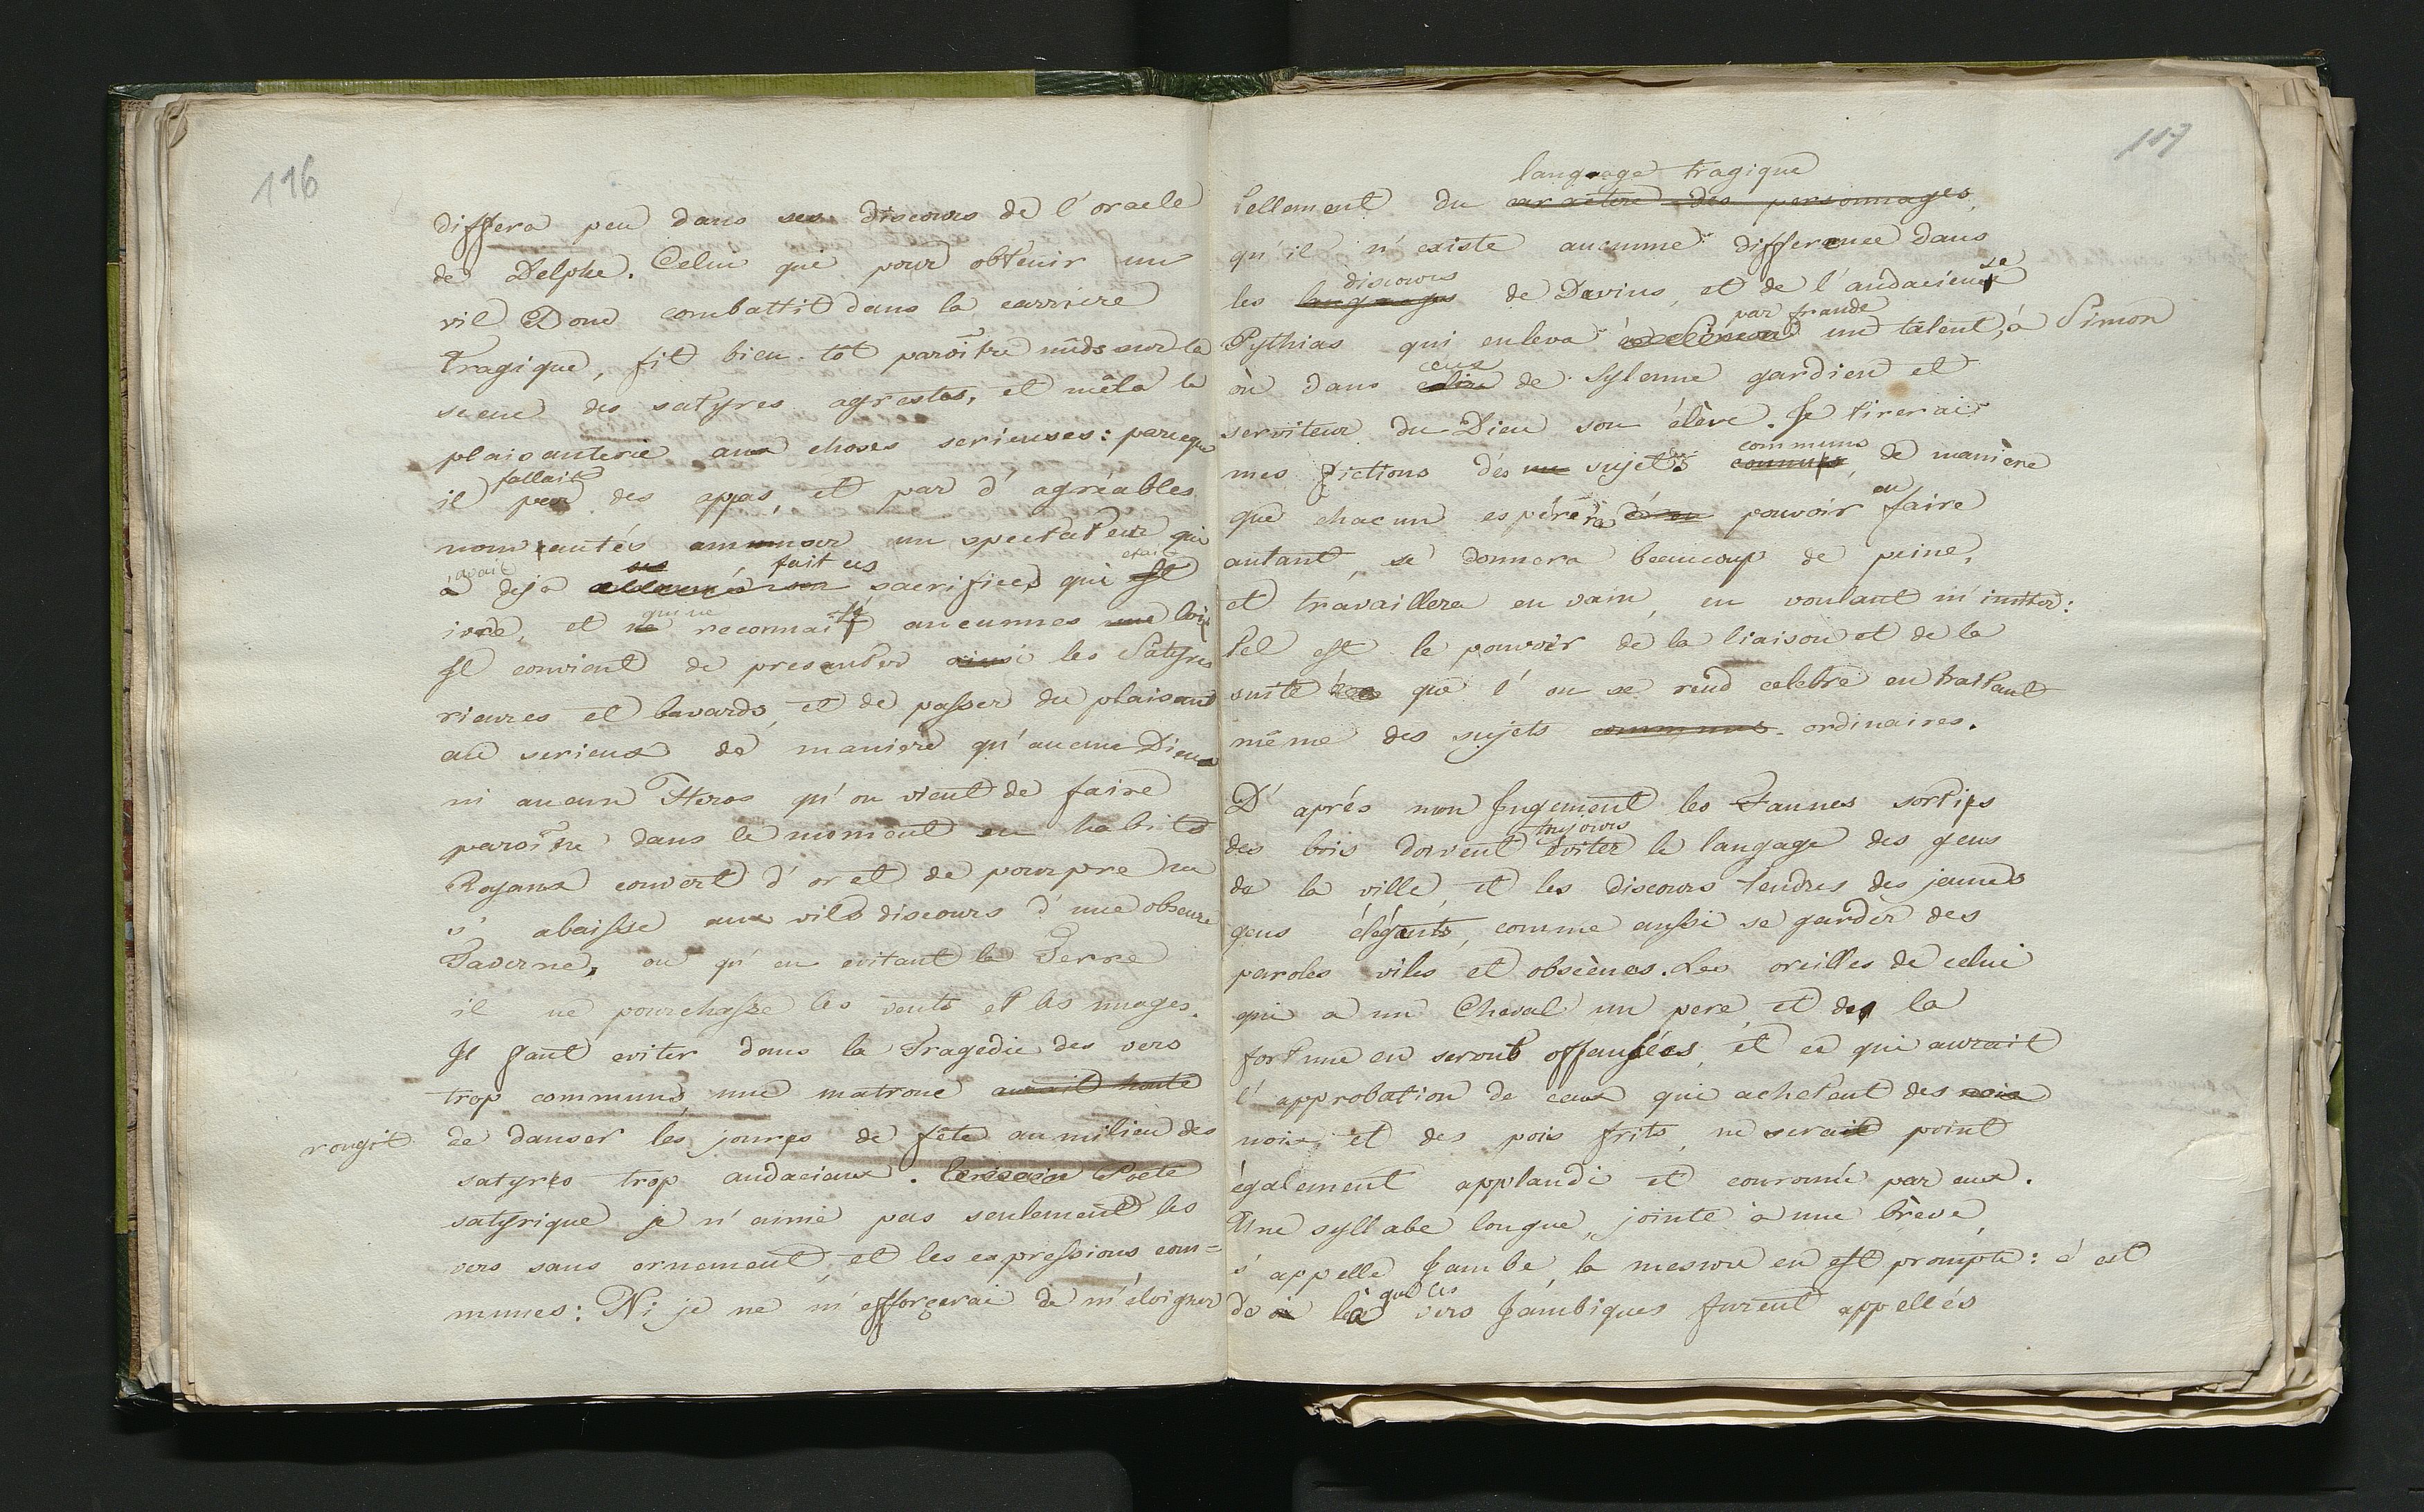 116
differa peu dans ses discours de l'oracle
de Delphe. Celui qui pour obtenir un
vil Donc combattit dans la carriere
Tragique, fit bien-tôt paroître nuds sur la
scene des satyres agrestes, et mêla la
plaisanterie aux choses serieuses: parceque
fallait
il par des appas, et par d'agréables
nouveautés amuser un spectateur qui
avait ses fait ces etait
a dejà son sacrifices qui est
qui ne
ivre, et ne reconnait aucunnes une loix
Il convient de presenter ainsi les Satyres
rieures et bavards, et de passer du plaisant
au serieux de maniere qu'aucun Dieux
ni aucun Heros qu'on vient de faire
paroître dans le moment en habits
Royaux couvert d'or et de pourpre ne
s'abaisse aux vils discours d'une obscure
Taverne, ou qu'en evitant la Terre
il ne pourchasse les vents et les nuages.
Il faut eviter dans la Tragedie des vers
trop communs, une matrone aurait honte
rougit de danser les jours de fête au milieu des
satyres trop audacieux. Poete
satyrique je n'aime pas seulement les
vers sans ornement, et les expressions com=
munes: Ni je ne m'efforçerai de m'eloigner
117
language tragique
tellement du caractere des personnages,
qu'il n'existe aucunne difference dans
discours se
les languages de Davius, et de l'audacieuse
par fraude
Pythias qui enleva à Simon un talent, à Simon
ceux
où dans celui de Sylenne gardien et
serviteur du Dieu son élève. Je tirerai
communs
mes fictions des un sujets connus, de manière
en
que chacun espérera d'en pouvoir faire
autant, se donnera beaucoup de peine,
et travaillera en vain, en voulant m'imiter:
tel est le pouvoir de la liaison et de la
suite que l'on se rend celebre en traitant
même des sujets communs ordinaires.
D'aprés mon Jugement les Faunes sortis
toujours
des bois doivent éviter le langage des gens
de la ville, et les discours tendres des jeunes
gens élégants, comme aussi se garder des
paroles viles et obscènes. Les oreilles de celui
qui a un Cheval un pere, et de la
fortune en seront offensées, et ce qui aurait
l'approbation de ceux qui achetent des noix
noix et des pois frits, ne serait point
également applaudi et couronné par eux.
Une syllabe longue, jointe à une brève,
s'appelle Jambe, la mesure en est prompte: c'est
que les
de là vers Jambiques furent appellés